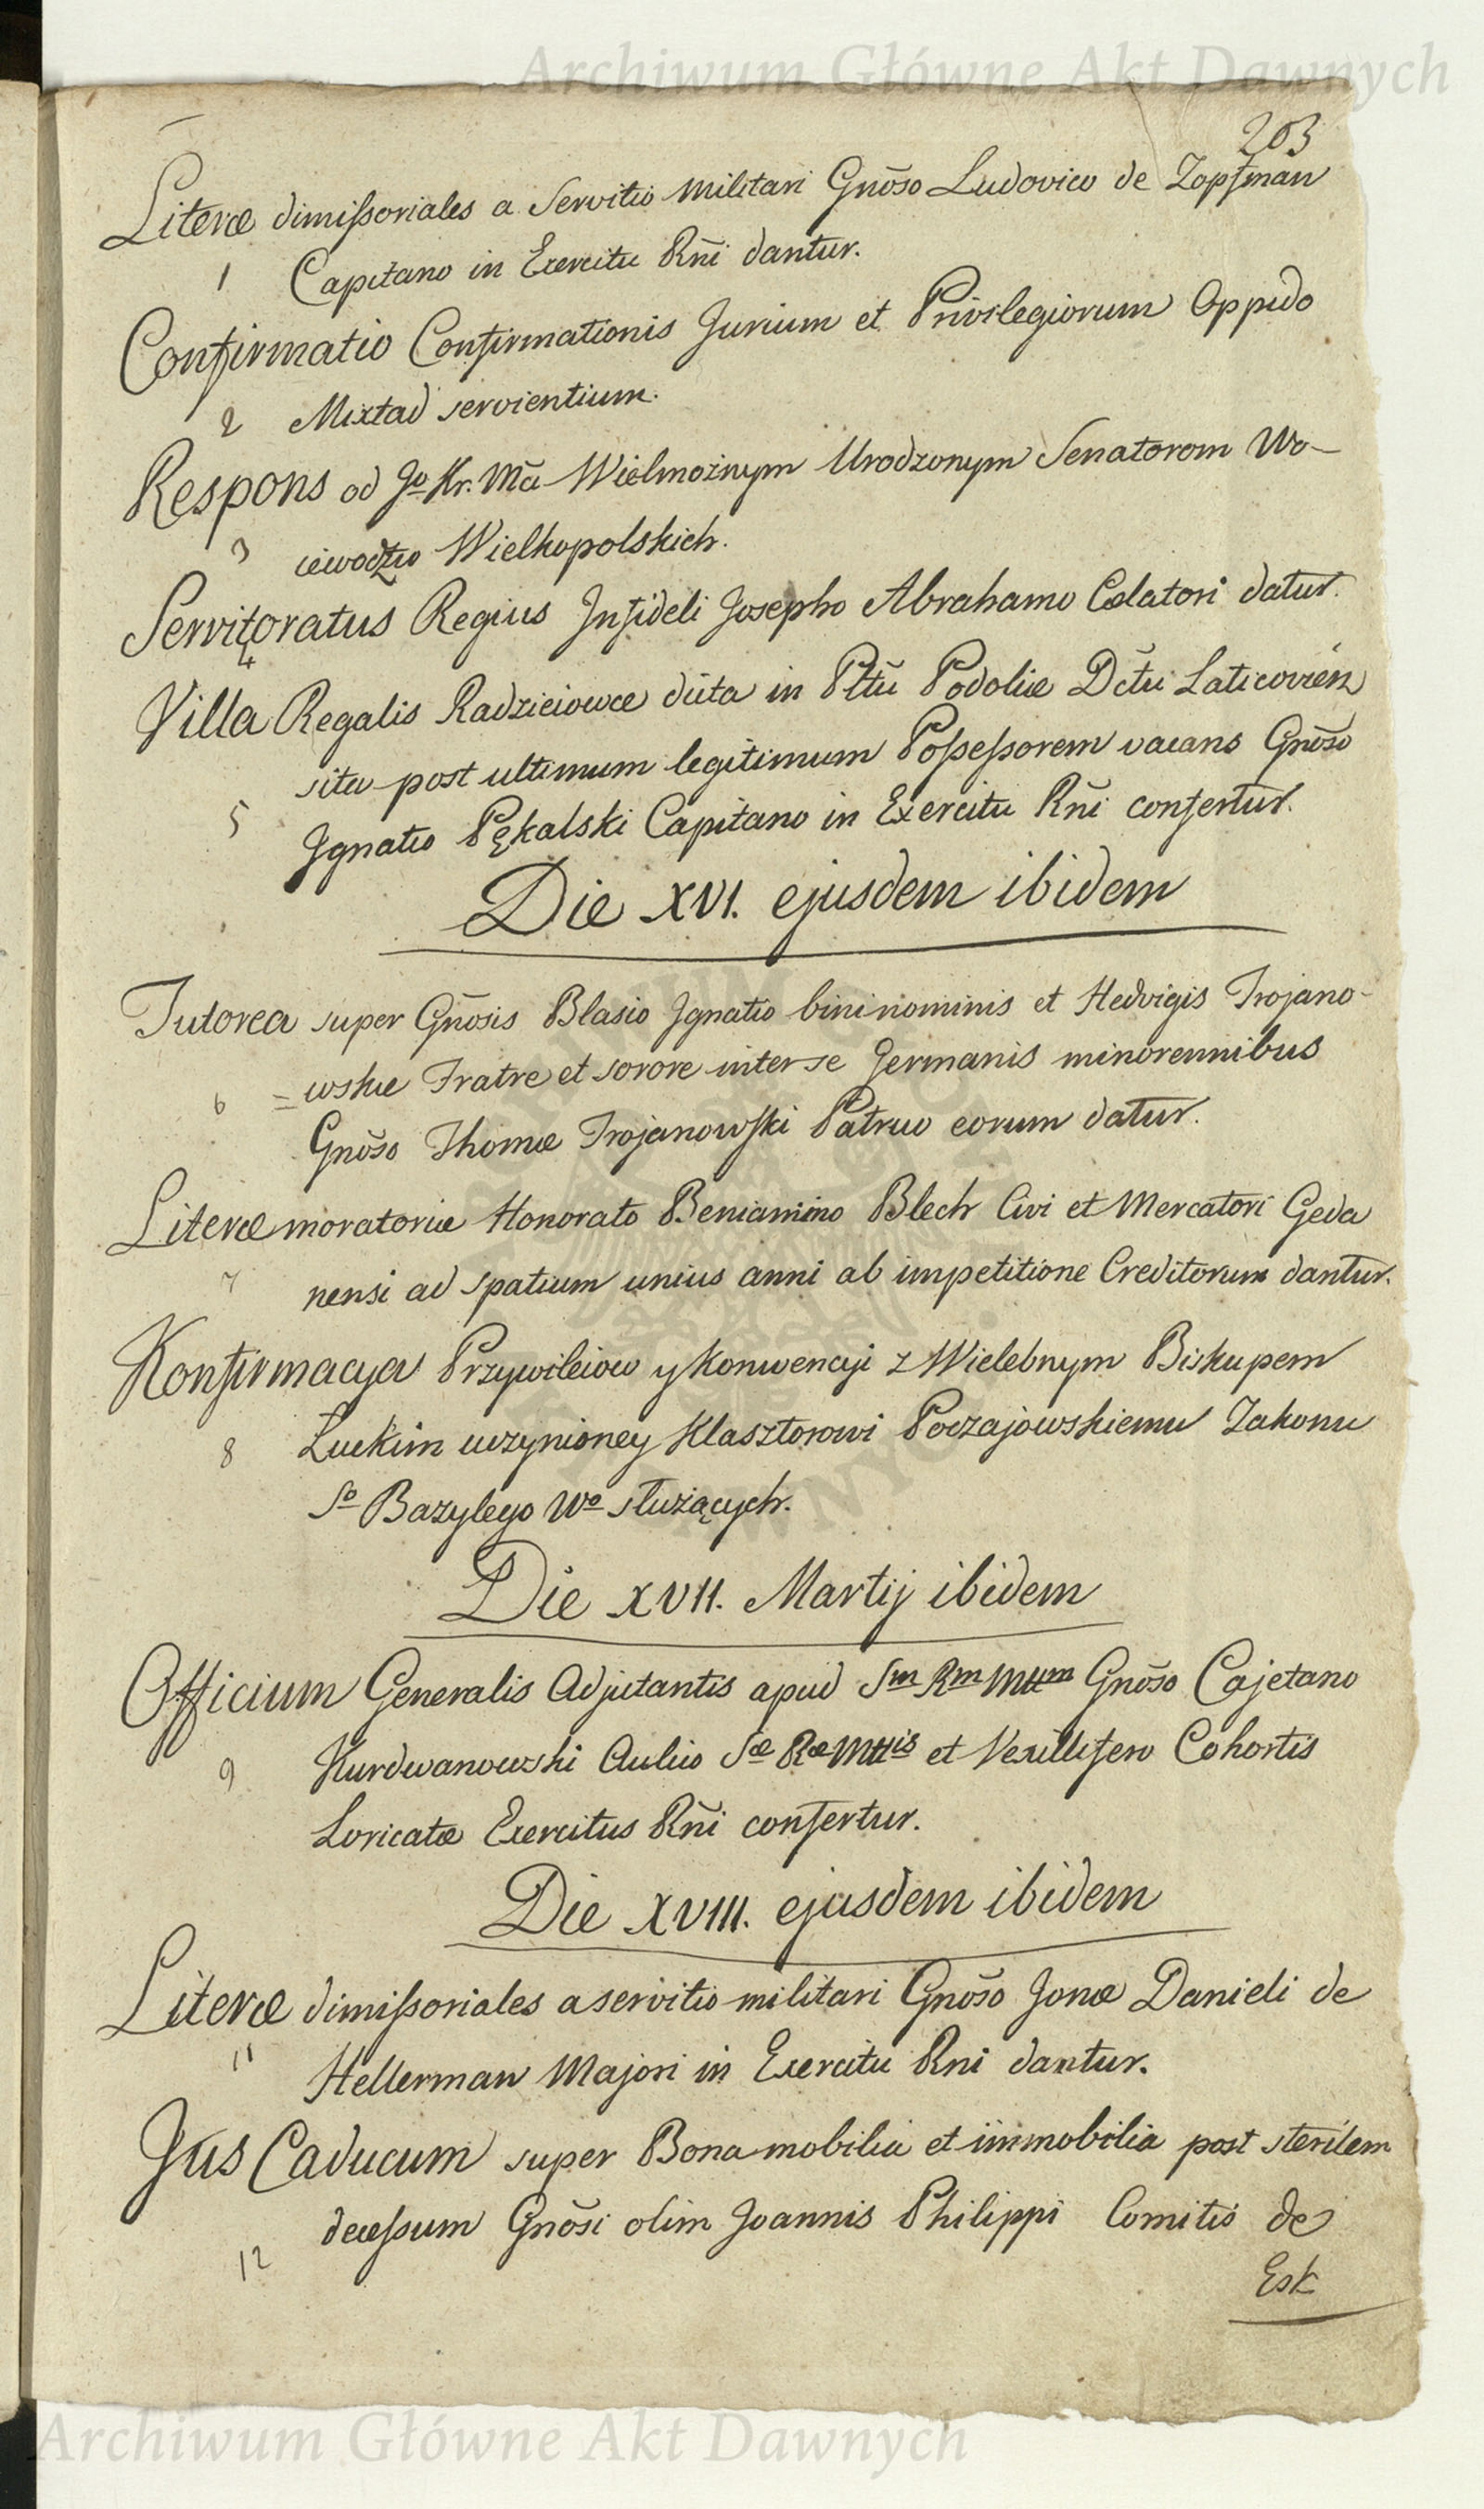 Archiwum Główne Akt Dawnych
203
Literæ dimißoriales a Servitio Militari Gnõso Ludovico de Zopfman
1 Capitano in Exercitu Rñi dantur.
Confirmatio Confirmationis Jurium et Privilegiorum Oppido
2 Mixtad servientium.
Respons od Jo Kr. Mći Wielmożnym Urodzonym Senatorom Wo-
3 iewodztw Wielkopolskich.
Servitoratus Regius Infideli Josepho Abrahamo Cælatori datur.
4
Villa Regalis Radzieiowce dicta in Pltũ Podoliæ Dctũ Laticovień
sita post ultimum legitimum Poßeßorem vacans Gnõso
5 Ignatio Pękalski Capitano in Exercitu Rñi confertur.
Die XVI. ejusdem ibidem
Tutorea super Gnõsis Blasio Ignatio binínominis et Hedvigis Trojano-
6 =wskie Fratre et sorore inter se Germanis minorennibus
Gnõso Thomæ Trojanowski Patruo eorum datur.
Literæ moratoriæ Honorato Beniamino Blech Civi et Mercatori Geda
7 nensi ad spatium unius anni ab impetitione Creditorum dantur.
Konfirmacya Przywileiow y Konwencyi z Wielebnym Biskupem
8 Łuckim uczynioney Klasztorowi Poczajowskiemu Zakonu
So Bazylego Wo służących.
Die XVII. Martij ibidem
Officium Generalis Adjutantis apud Sm Rm Mttm Gnõso Cajetano
9 Kurdwanowski Aulico Sæ Ræ Mttis et Vexillifero Cohortis
Loricatæ Exercitus Rñi confertur.
Die XVIII. ejusdem ibidem
Literæ dimißoriales a servitio militari Gnõso Jonæ Danieli de
11 Hellerman Majori in Exercitu Rni dantur.
Jus Caducum super Bona mobilia et immobilia post sterilem
deceßum Gnõsi olim Joannis Philippi Comitis de
12
Esk
Archiwum Główne Akt Dawnych